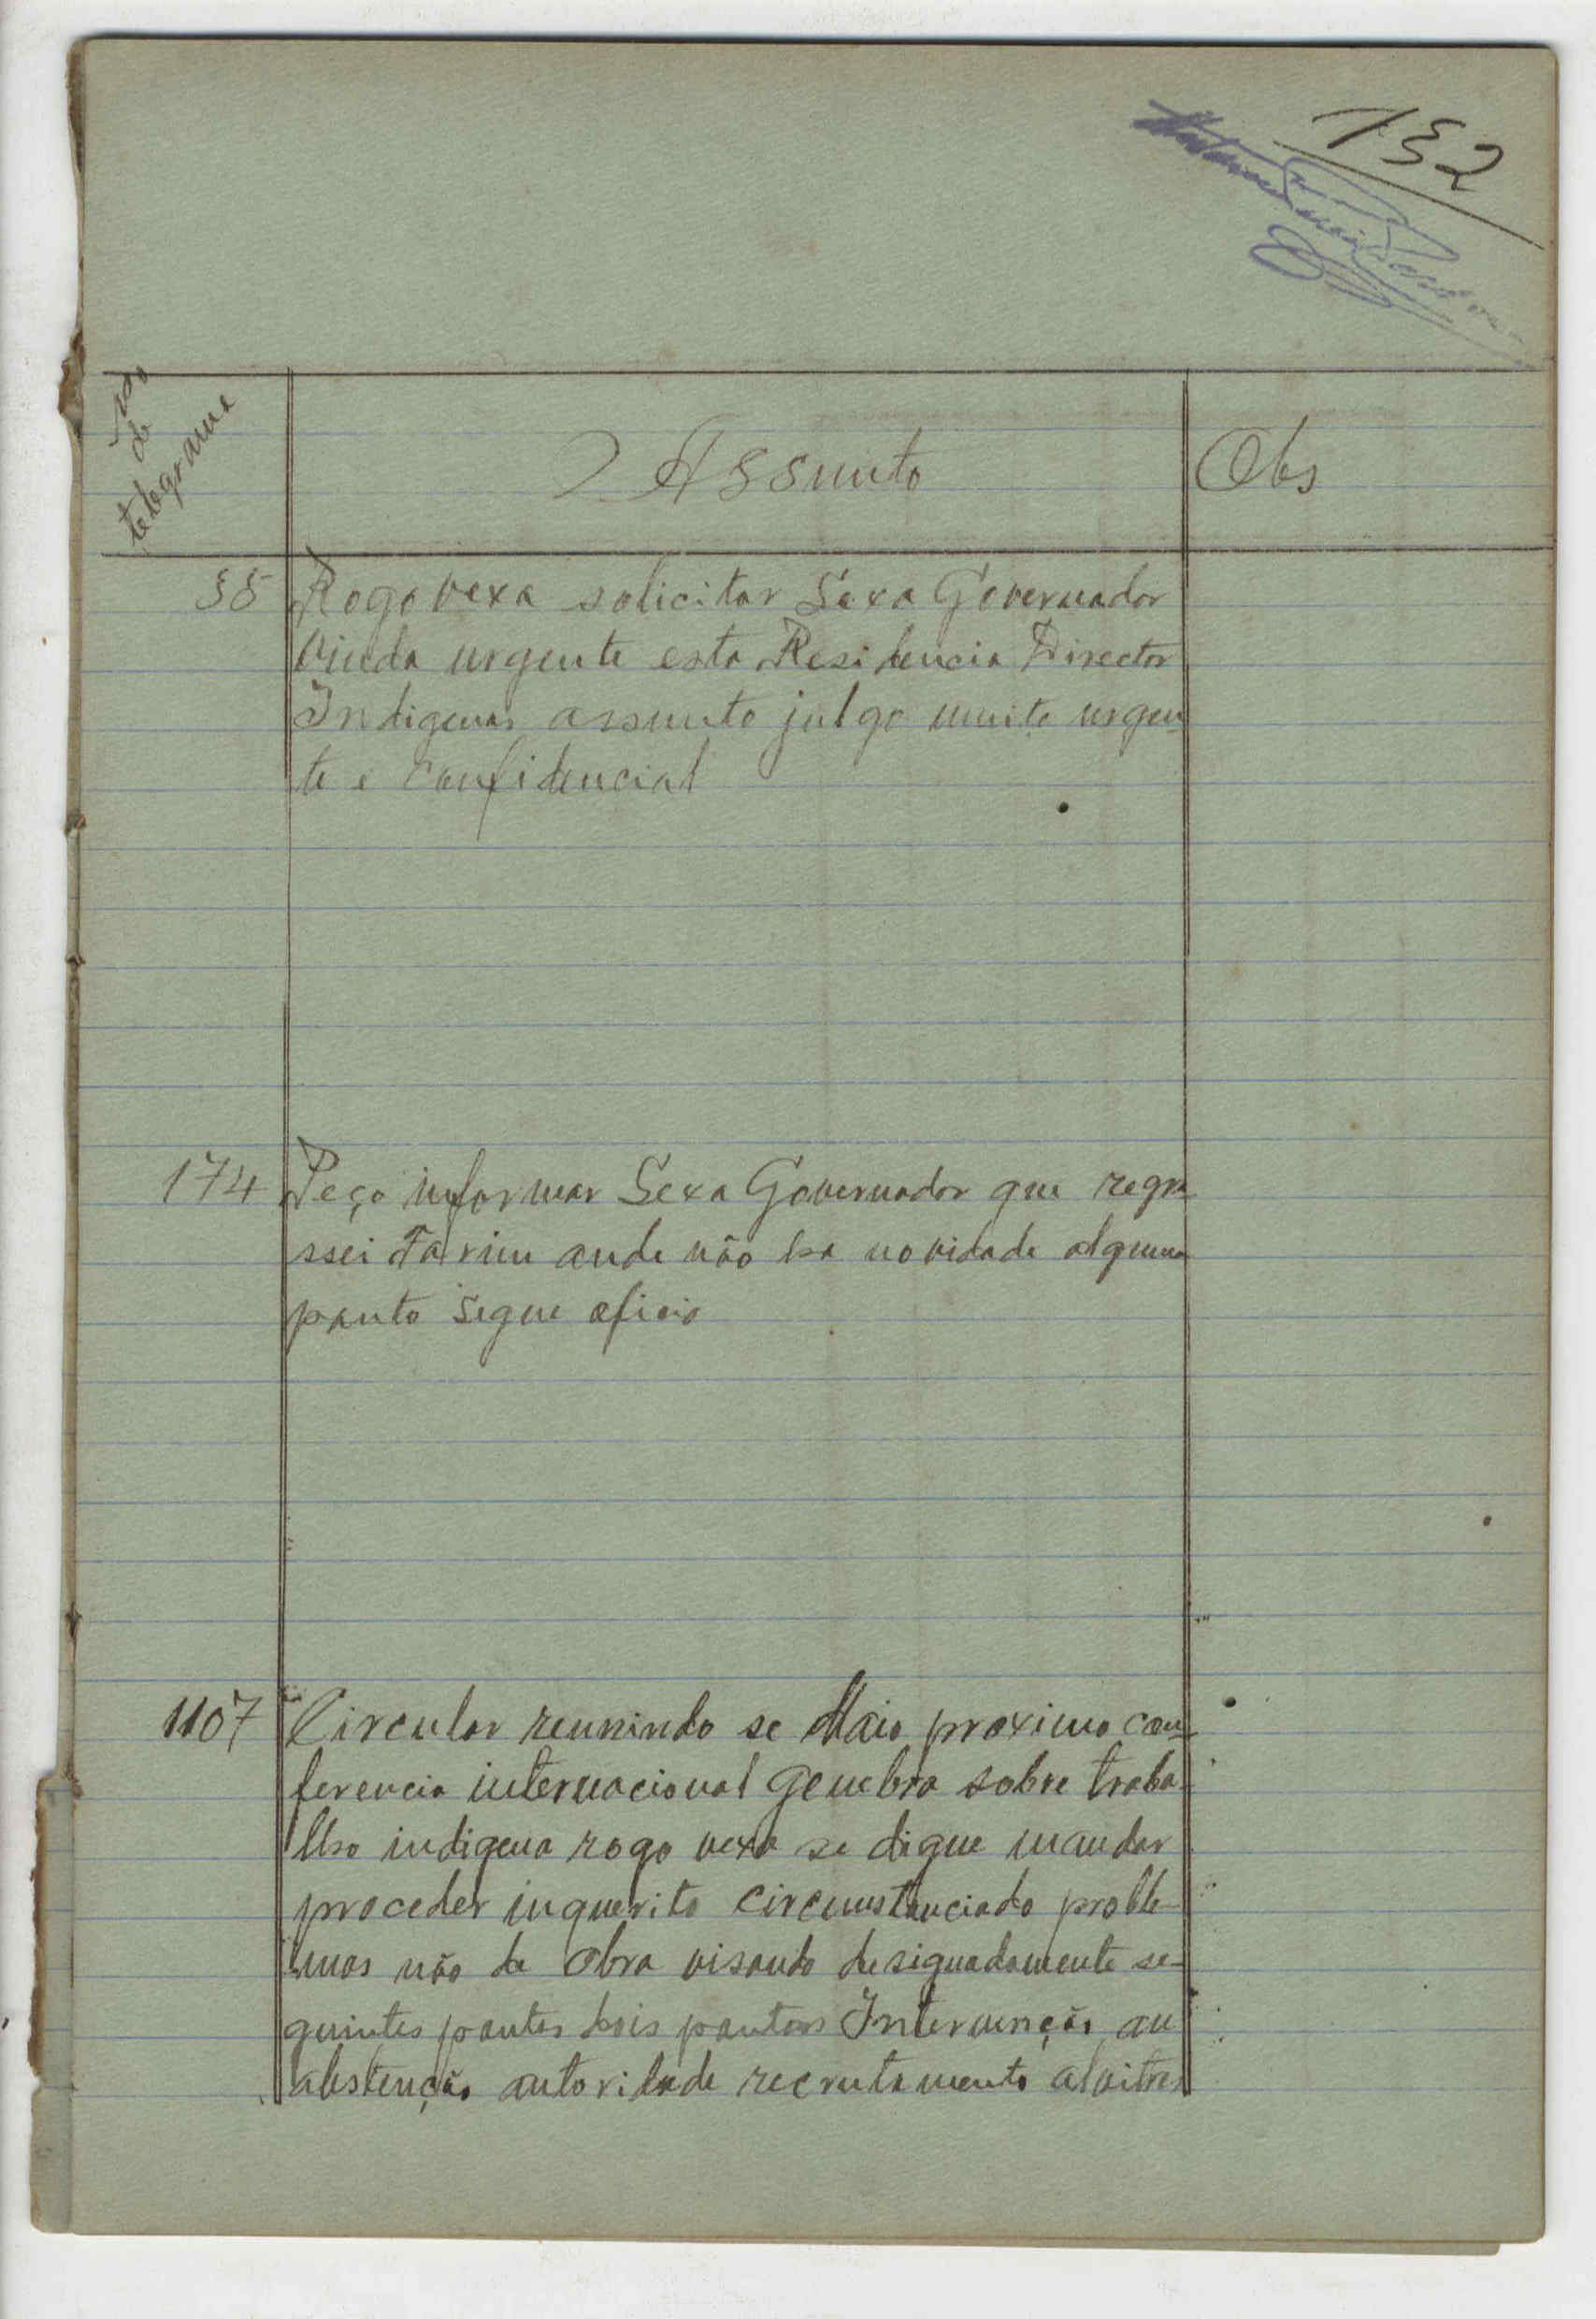 152
No
de
telegrama
Assunto
Obs
55
Rogo vexa solicitar Sexa Governador
vinda urgente esta Residencia Director
Indigenas assunto julgo muito urgen
te e confidencial
174
Peço informar Sexa Governador que regre
ssei Farim onde não ha novidade alguma
ponto segue oficio
1107
Circular reunindo se Maio proximo con-
ferencia internacional Genebra sobre traba-
lho indigena rogo vexa se digne mandar
proceder inquerito circunstanciado proble-
mas mão de obra visando designadamente se-
guintes pontos dois pontos Intervenção ou
abstenção autoridade recrutamento alvitres